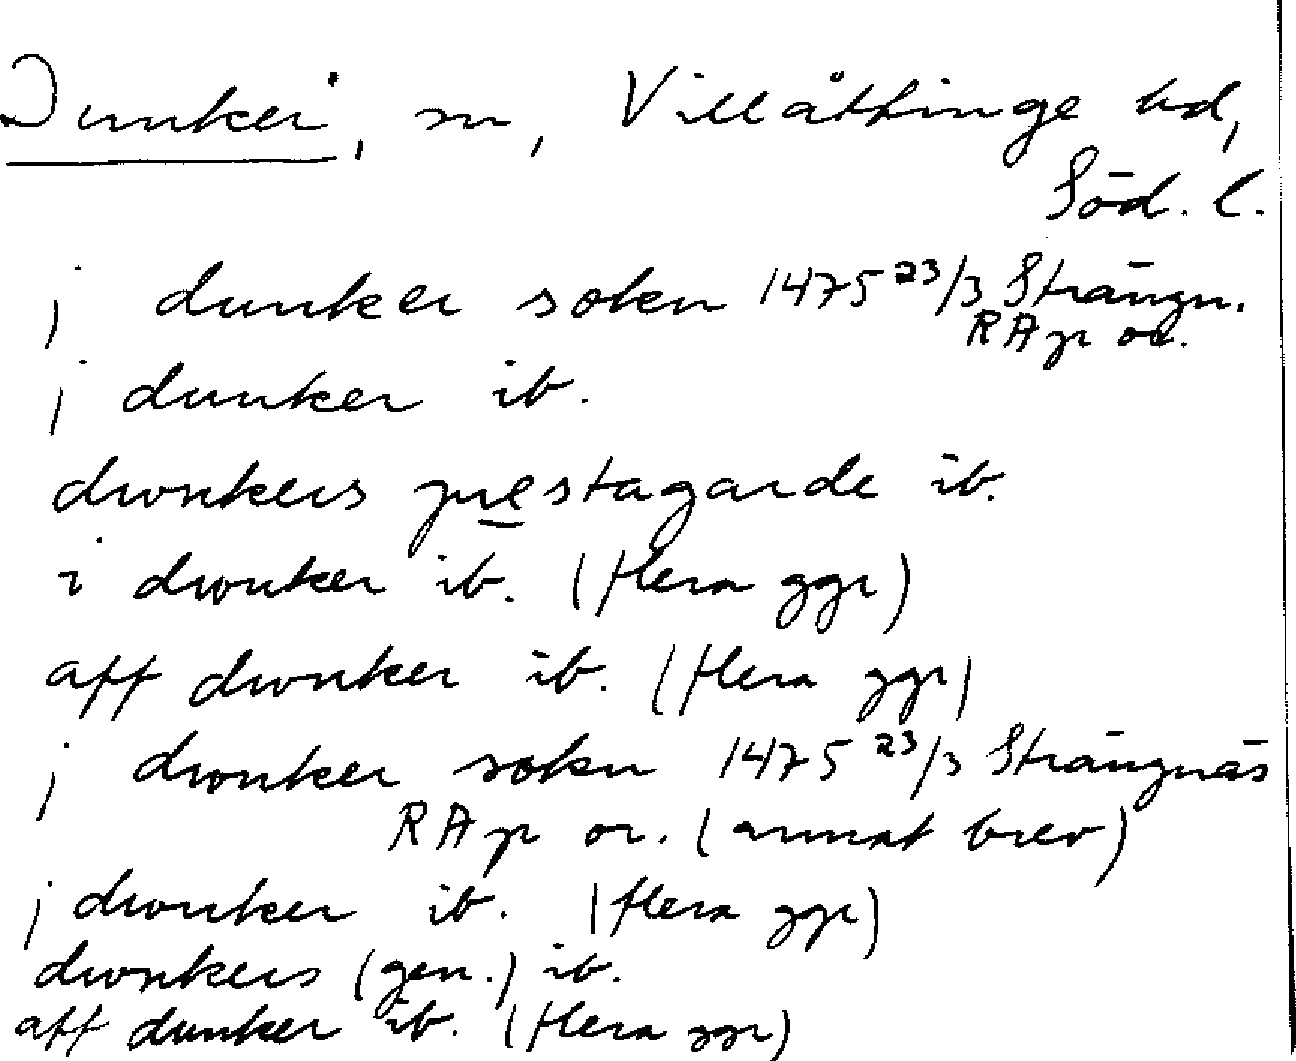 Dunker, sn, Villåttinge hd,
Söd. l.
j dunker sokn 1475 23/3 Strängn.
RAp or.
j dunker ib.
dwnkers prestagarde ib.
i dwnker ib. (flera ggr)
aff dwnker ib. (flera ggr)
j dwnker sokn 1475 23/3 Strängnäs
RAp or. (annat brev)
j dwnker ib. (flera ggr)
dwnkers (gen.) ib.
aff dunker ib. (flera ggr)